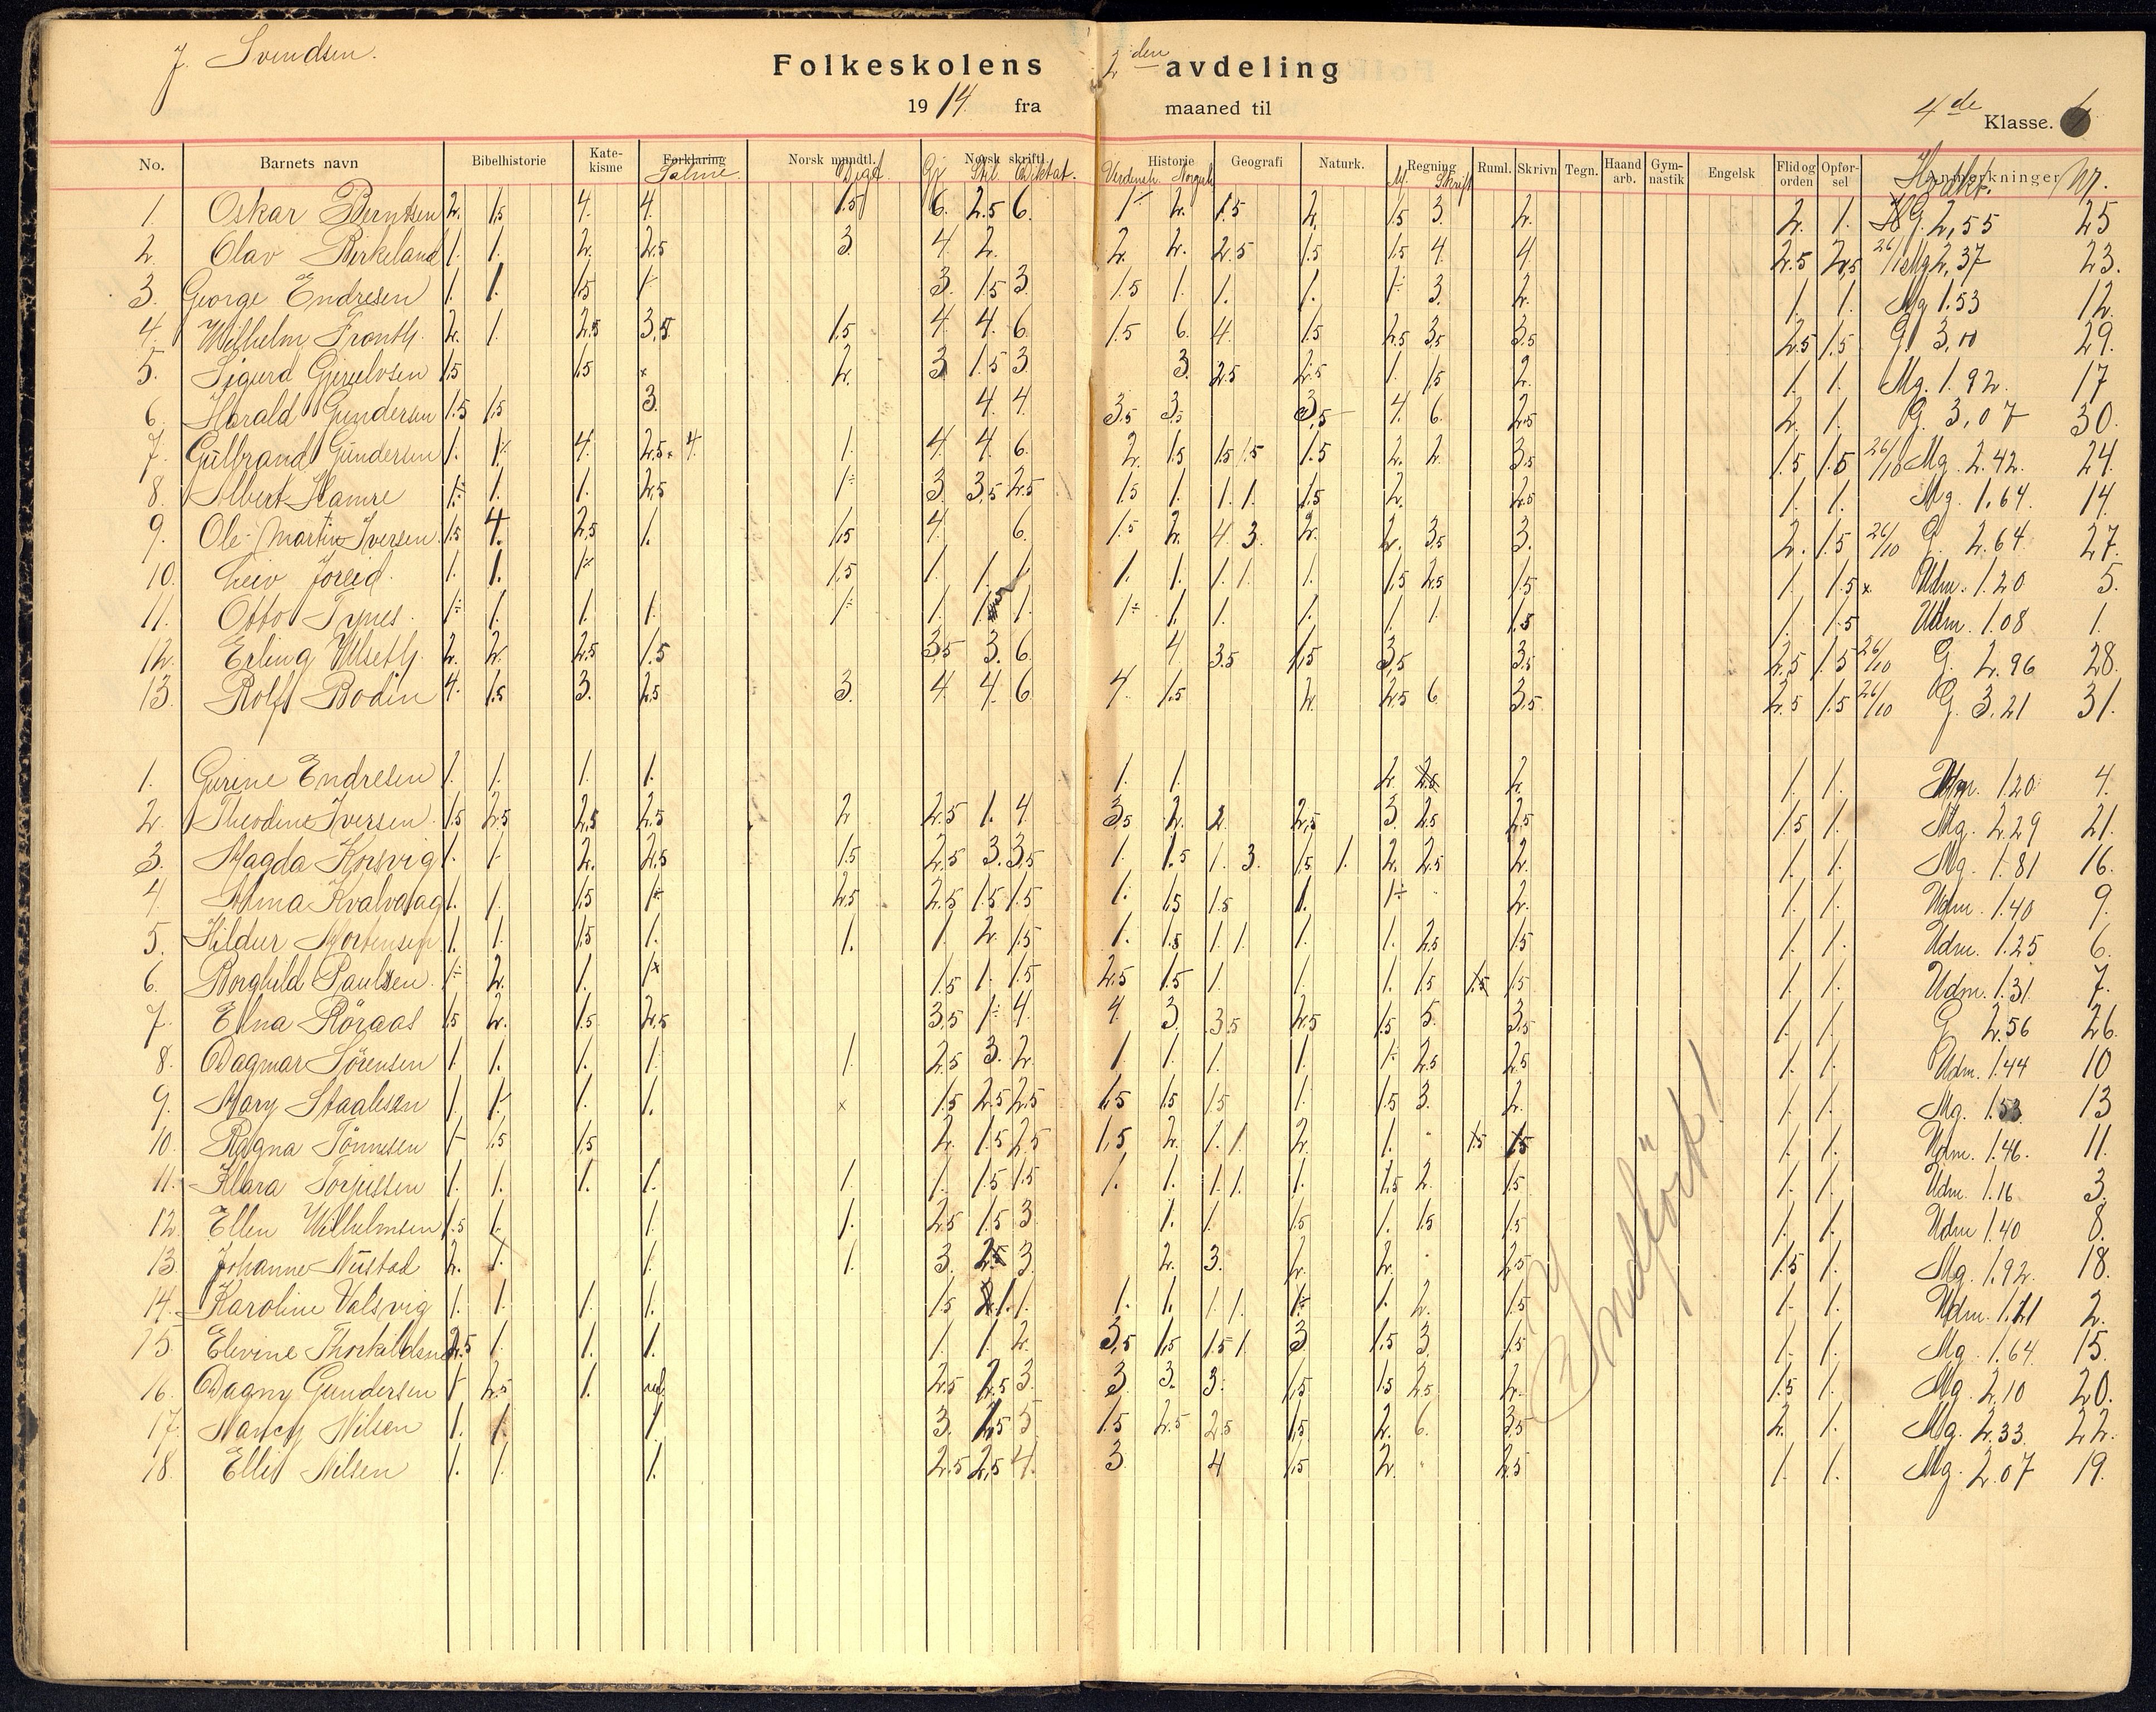 J. Svendsen.
Folkeskolens 2den avdeling
1914. fra maaned til 4de Klasse.
No. Barnets navn Bibelhistorie Kate-kisme Forklaring Norsk mundtl. Norsk skriftl. Historie Geografi Naturk. Regning Ruml. Skrivn Tegn. Haand arb. Gym-nastik Engelsk Flid og orden Opfør-sel Anmerkninger Nr.
Salme. Digt Stil Diktat. Verdensh. Norgesh. M. Skrift Hovedkr.
1. Oskar Berntsen 2. 1.5 4. 4. 1.5 6. 2.5 6. 1- 2. 1.5 2. 1.5 3. 2. 2. 1. G. 2,55 25
2. Olav Birkeland 1. 1. 2. 2.5 3. 4. 2. 2. 2. 2.5 1.5 1.5 4. 4. 2.5 2.5 26/10 Mg 2,37 23.
3. George Endresen 1. 1. 1.5 1- 3. 1.5 3. 1.5 1. 1. 1. 1- 3. 2. 1. 1. Mg 1.53 12.
4. Wilhelm Fronth. 2. 1. 2.5 3,5 1.5 4. 4. 6. 1.5 6. 4. 1.5 2.5 3.5 3.5 2.5 1.5 G. 3,00 29.
5. Sigurd Gjerulvsen 1.5 1.5 x 2. 3 1.5 3. 3. 2.5 2.5 1. 1.5 2. 1. 1. Mg. 1.92. 17
6. Harald Gundersen 1.5 1.5 3. 4. 4. 3.5 3.5 3,5 4. 6. 2.5 2. 1. G. 3,07 30.
7. Gulbrand Gundersen 1. 1- 4. 2.5. 4. 1. 4. 4. 6. 2. 1.5 1.5 1.5 1.5 2. 2. 3.5 1.5 1.5 26/10 Mg. 2.42. 24.
8. Albert Hamre 1÷ 1. 1. 2.5 1÷ 3. 3.5 2.5 1.5 1. 1. 1. 1.5 2. 2.5 1. 1. Mg. 1.64. 14.
9. Ole-Martin Iversen. 1.5 4. 2.5 1. 1.5 4. 6. 1.5 2. 4. 3. 2. 2. 3.5 3. 2. 1.5 26/10 G. 2.64 27.
10. Leiv Joreid. 1. 1. 1÷ 1.5 1. 1. 1. 1. 1. 1. 1. 1. 1.5 2.5 1.5 1. 1.5 x. Udm. 1.20 5.
11. Otto Tynes. 1÷ 1. 1. 1. 1÷ 1. 1. 1. 1÷ 1. 1. 1. 1. 1. 1.5 1. 1.5 Udm. 1.08 1.
12. Erling Ulseth. 2. 2. 2.5 1.5 3.5 3. 6. 4. 3.5 1.5 3.5 3.5 2.5 1.5 26/10 G. 2.96 28.
13. Rolf Bodin 4. 1.5 3. 2.5 3. 4. 4. 6. 4. 1.5 2. 2.5 6. 3.5 2.5 1.5 26/10 G. 3.21 31.
1. Gurine Endresen 1. 1. 1. 1. 1. 1. 2. 2.5 2. 1. 1. Udm. 1.20. 4.
2. Theodine Iversen. 1.5 2.5 2.5 2.5 2 2.5 1. 4. 3.5 2. 2. 2.5 3. 2.5 2.5 1.5 1. Mg. 2.29 21.
3. Magda Korsvig 1. 1. 2. 2.5 1.5 2.5 3. 3.5 1. 1.5 1. 3. 1.5 1. 2. 2.5 2. 1. 1. Mg. 1.81 16.
4. Alma Kvalvaag 1. 1. 1.5 1÷ 2.5 2.5 1.5 1.5 1. 1.5 1.5 1. 1÷ 2. 1. 1. Udm. 1.40 9.
5. Hildur Mortensen 1. 1. 1.5 1. 1. 1. 2. 1.5 1. 1.5 1. 1. 1. 1. 2.5 1.5 1. 1. Udm. 1.25 6.
6. Borghild Paulsen. 1÷ 2. 1. 1x 1.5 1. 1.5 2.5 1.5 1. 1. 1. 1.5 1.5 1.5 1. 1. Udm. 1.31 7.
7. Elna Röraas 1.5 2. 1.5 2.5 3.5 1- 4. 4. 3. 3.5 2.5 1.5 5. 3.5 1. 1. G 2.56 26.
8. Dagmar Sörensen 1. 1. 1. 1. 1. 2.5 3. 2. 1. 1. 1. 1. 1- 2.5 2.5 1. 1. Udm. 1.44 10
9. Mary Staalesen 1. 1- 1. 1. x 1.5 2.5 2.5 1.5 1.5 1.5 1. 1.5 3. 2. 1. 1. Mg. 1.53 13
10. Ragna Tönnesen 1- 1.5 1.5 2. 1.5 2.5 1.5 2. 1. 1. 2. 1. 1.5 1.5 1. 1. Udm. 1.46. 11.
11. Klara Torjussen 1. 1. 1. 1. 1. 1. 1.5 1.5 1. 1. 1. 1. 1. 1.5 2. 1.5 1. 1. Udm. 1.16 3.
12. Ellen Wilhelmsen 1.5 1. 1. 1. 2.5 1.5 3. 1. 1. 1.5 1. 1.5 1.5 1. 1. Udm 1.40 8.
13. Johanne Nustad 2. 1. 1. 1. 3. 2.5 3. 2. 3. 2. 2. 2.5 1.5 1. Mg. 1.92. 18.
14. Karoline Valsvig 1. 1. 1. 1. 1.5 1. 1. 1. 1. 1. 1. 1÷ 1. 2. 1.5 1. 1. Udm. 1.11 2.
15. Elevine Thorkildsen 2.5 1. 1. 1. 1. 1. 2. 3.5 1.5 1.5 1. 3. 1.5 3. 1.5 1. 1. Mg. 1.64. 15.
16. Dagny Gundersen 1- 2.5 1. 2.5 2.5 3. 3. 3. 3. 1.5 1.5 2.5 2. 1.5 1. Mg. 2.10 20.
17. Nancy Nilsen 1. 1. 1. 3. 1.5 5. 1.5 2.5 2.5 1.5 2. 6. 3.5 2. 1. Mg. 2.33. 22.
18. Ellis Nilsen 1. 1. 1. 2.5 2.5 4. 3. 4 1.5 2. 2.5 1. 1. Mg. 2.07 19.
Indfört!